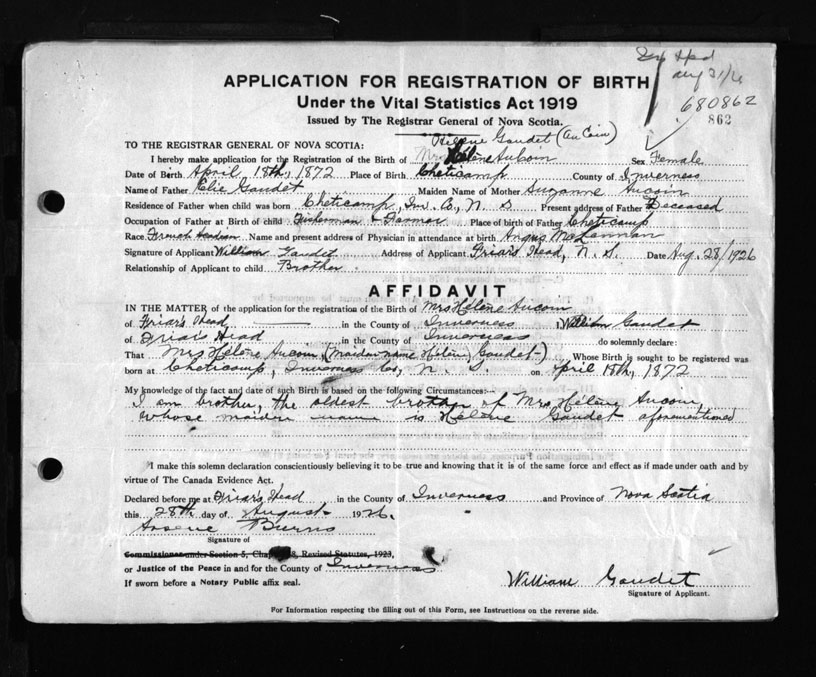 Aug 31/26
APPLICATION FOR REGISTRATION OF BIRTH
680862
Under the Vital Statistics Act 1919
862
Issued by The Registrar General of Nova Scotia.
Hélène Gaudet (Au Coin)
TO THE REGISTRAR GENERAL OF NOVA SCOTIA:
I hereby make application for the Registration of the Birth of Mrs Hélène Aucoin Sex Female
Date of Birth April, 18th, 1872 Place of Birth Cheticamp County of Inverness
Name of Father Elie Gaudet Maiden Name of Mother Suzanne Aucoin
Residence of Father when child was born Cheticamp, Inv. Co., N. S Present address of Father Deceased
Occupation of Father at Birth of child Fisherman & Farmer Place of birth of Father Cheticamp
Race French Acadian Name and present address of Physician in attendance at birth Angus McLennan
Signature of Applicant William Gaudet Address of Applicant Friar's Head, N. S. Date Aug. 28/1926
Relationship of Applicant to child Brother.
AFFIDAVIT
IN THE MATTER of the application for the registration of the Birth of Mrs Hélène Aucoin
of Friar's Head in the County of Inverness I, William Gaudet
of Friar's Head in the County of Inverness do solemnly declare:
That Mrs Hélène Aucoin, (Maiden name Hélène Gaudet) Whose Birth is sought to be registered was
born at Cheticamp, Inverness Co, N. S. on April 18th, 1872
My knowledge of the fact and date of such Birth is based on the following Circumstances:—
I am brother, the oldest brother of Mrs Hélène Aucoin,
whose maiden name is Hélène Gaudet aforementioned
I make this solemn declaration conscientiously believing it to be true and knowing that it is of the same force and effect as if made under oath and by
virtue of The Canada Evidence Act.
Declared before me at Friar's Head in the County of Inverness and Province of Nova Scotia
this 28th day of August 1926.
Arsene Burns
Signature of
Commissioner under Section 5, Chap. 38, Revised Statutes, 1923,
or Justice of the Peace in and for the County of Inverness
If sworn before a Notary Public affix seal.
William Gaudet
Signature of Applicant.
For Information respecting the filling out of this Form, see Instructions on the reverse side.